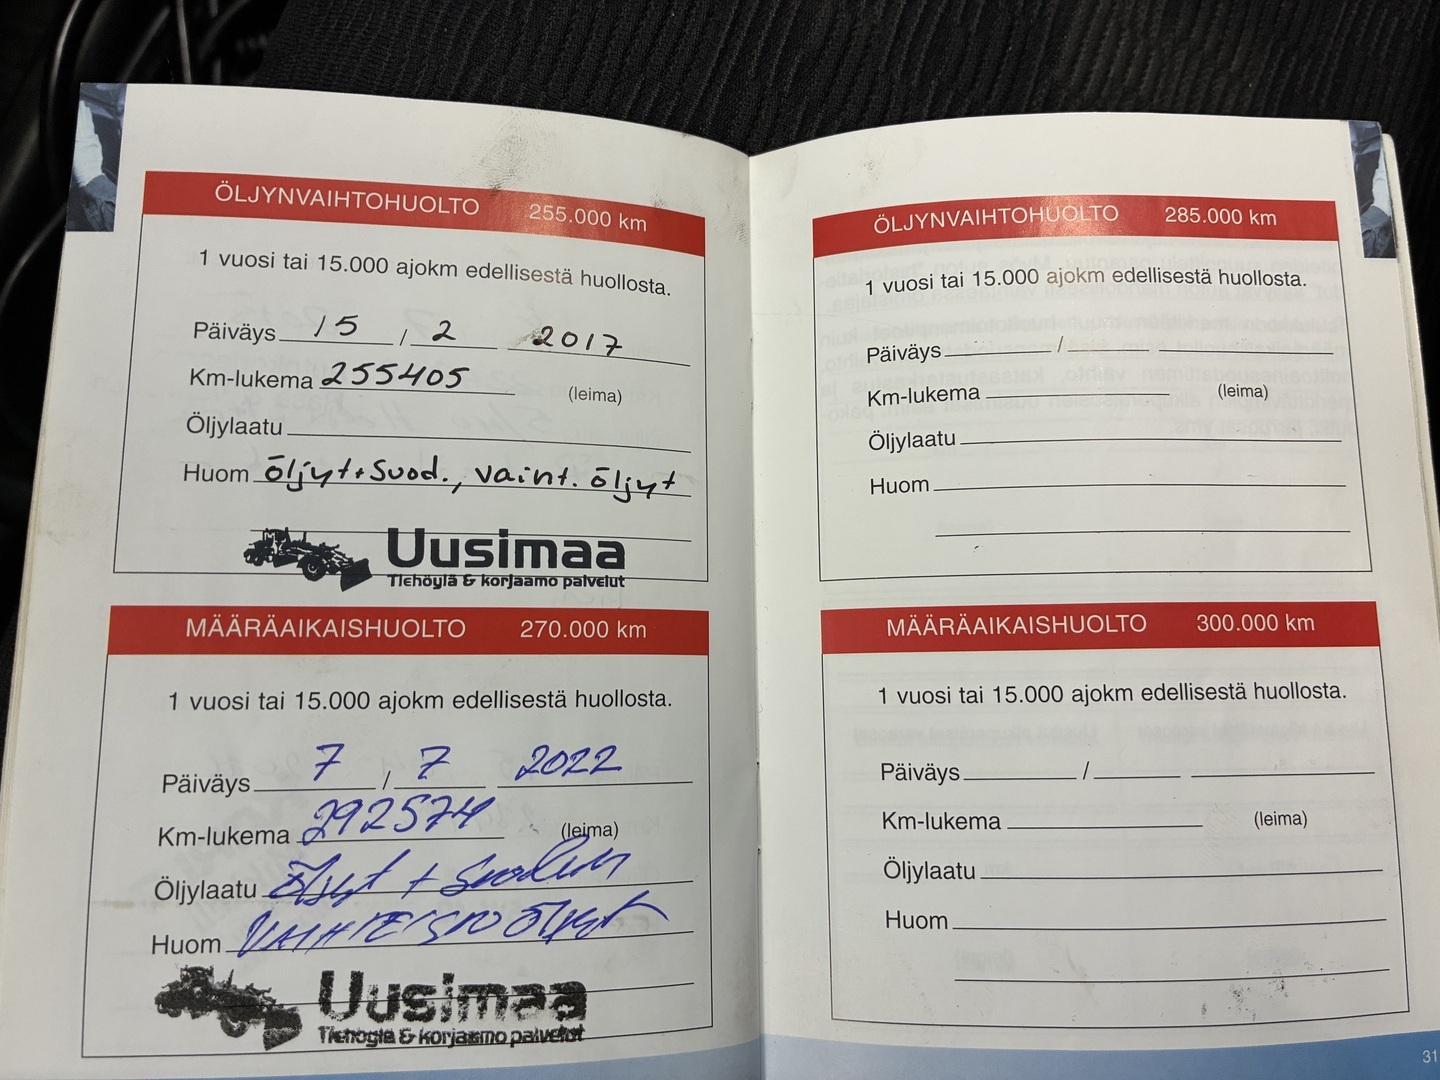 ÖLJYNVAIHTOHUOLTO 255.000 km
1 vuosi tai 15.000 ajokm edellisestä huollosta.
Päiväys 15 / 2 2017
Km-lukema 255405 (leima)
Öljylaatu
Huom öljyt+Suod., vaiht. öljyt
Uusimaa
Tiehöylä & korjaamo palvelut
MÄÄRÄAIKAISHUOLTO 270.000 km
1 vuosi tai 15.000 ajokm edellisestä huollosta.
Päiväys 7 / 7 2022
Km-lukema 292574 (leima)
Öljylaatu Öljyt +
Huom VAIHTEISTO Öljyt
Uusimaa
Tiehöylä & korjaamo palvelut
ÖLJYNVAIHTOHUOLTO 285.000 km
1 vuosi tai 15.000 ajokm edellisestä huollosta.
Päiväys /
Km-lukema (leima)
Öljylaatu
Huom
MÄÄRÄAIKAISHUOLTO 300.000 km
1 vuosi tai 15.000 ajokm edellisestä huollosta.
Päiväys /
Km-lukema (leima)
Öljylaatu
Huom
31